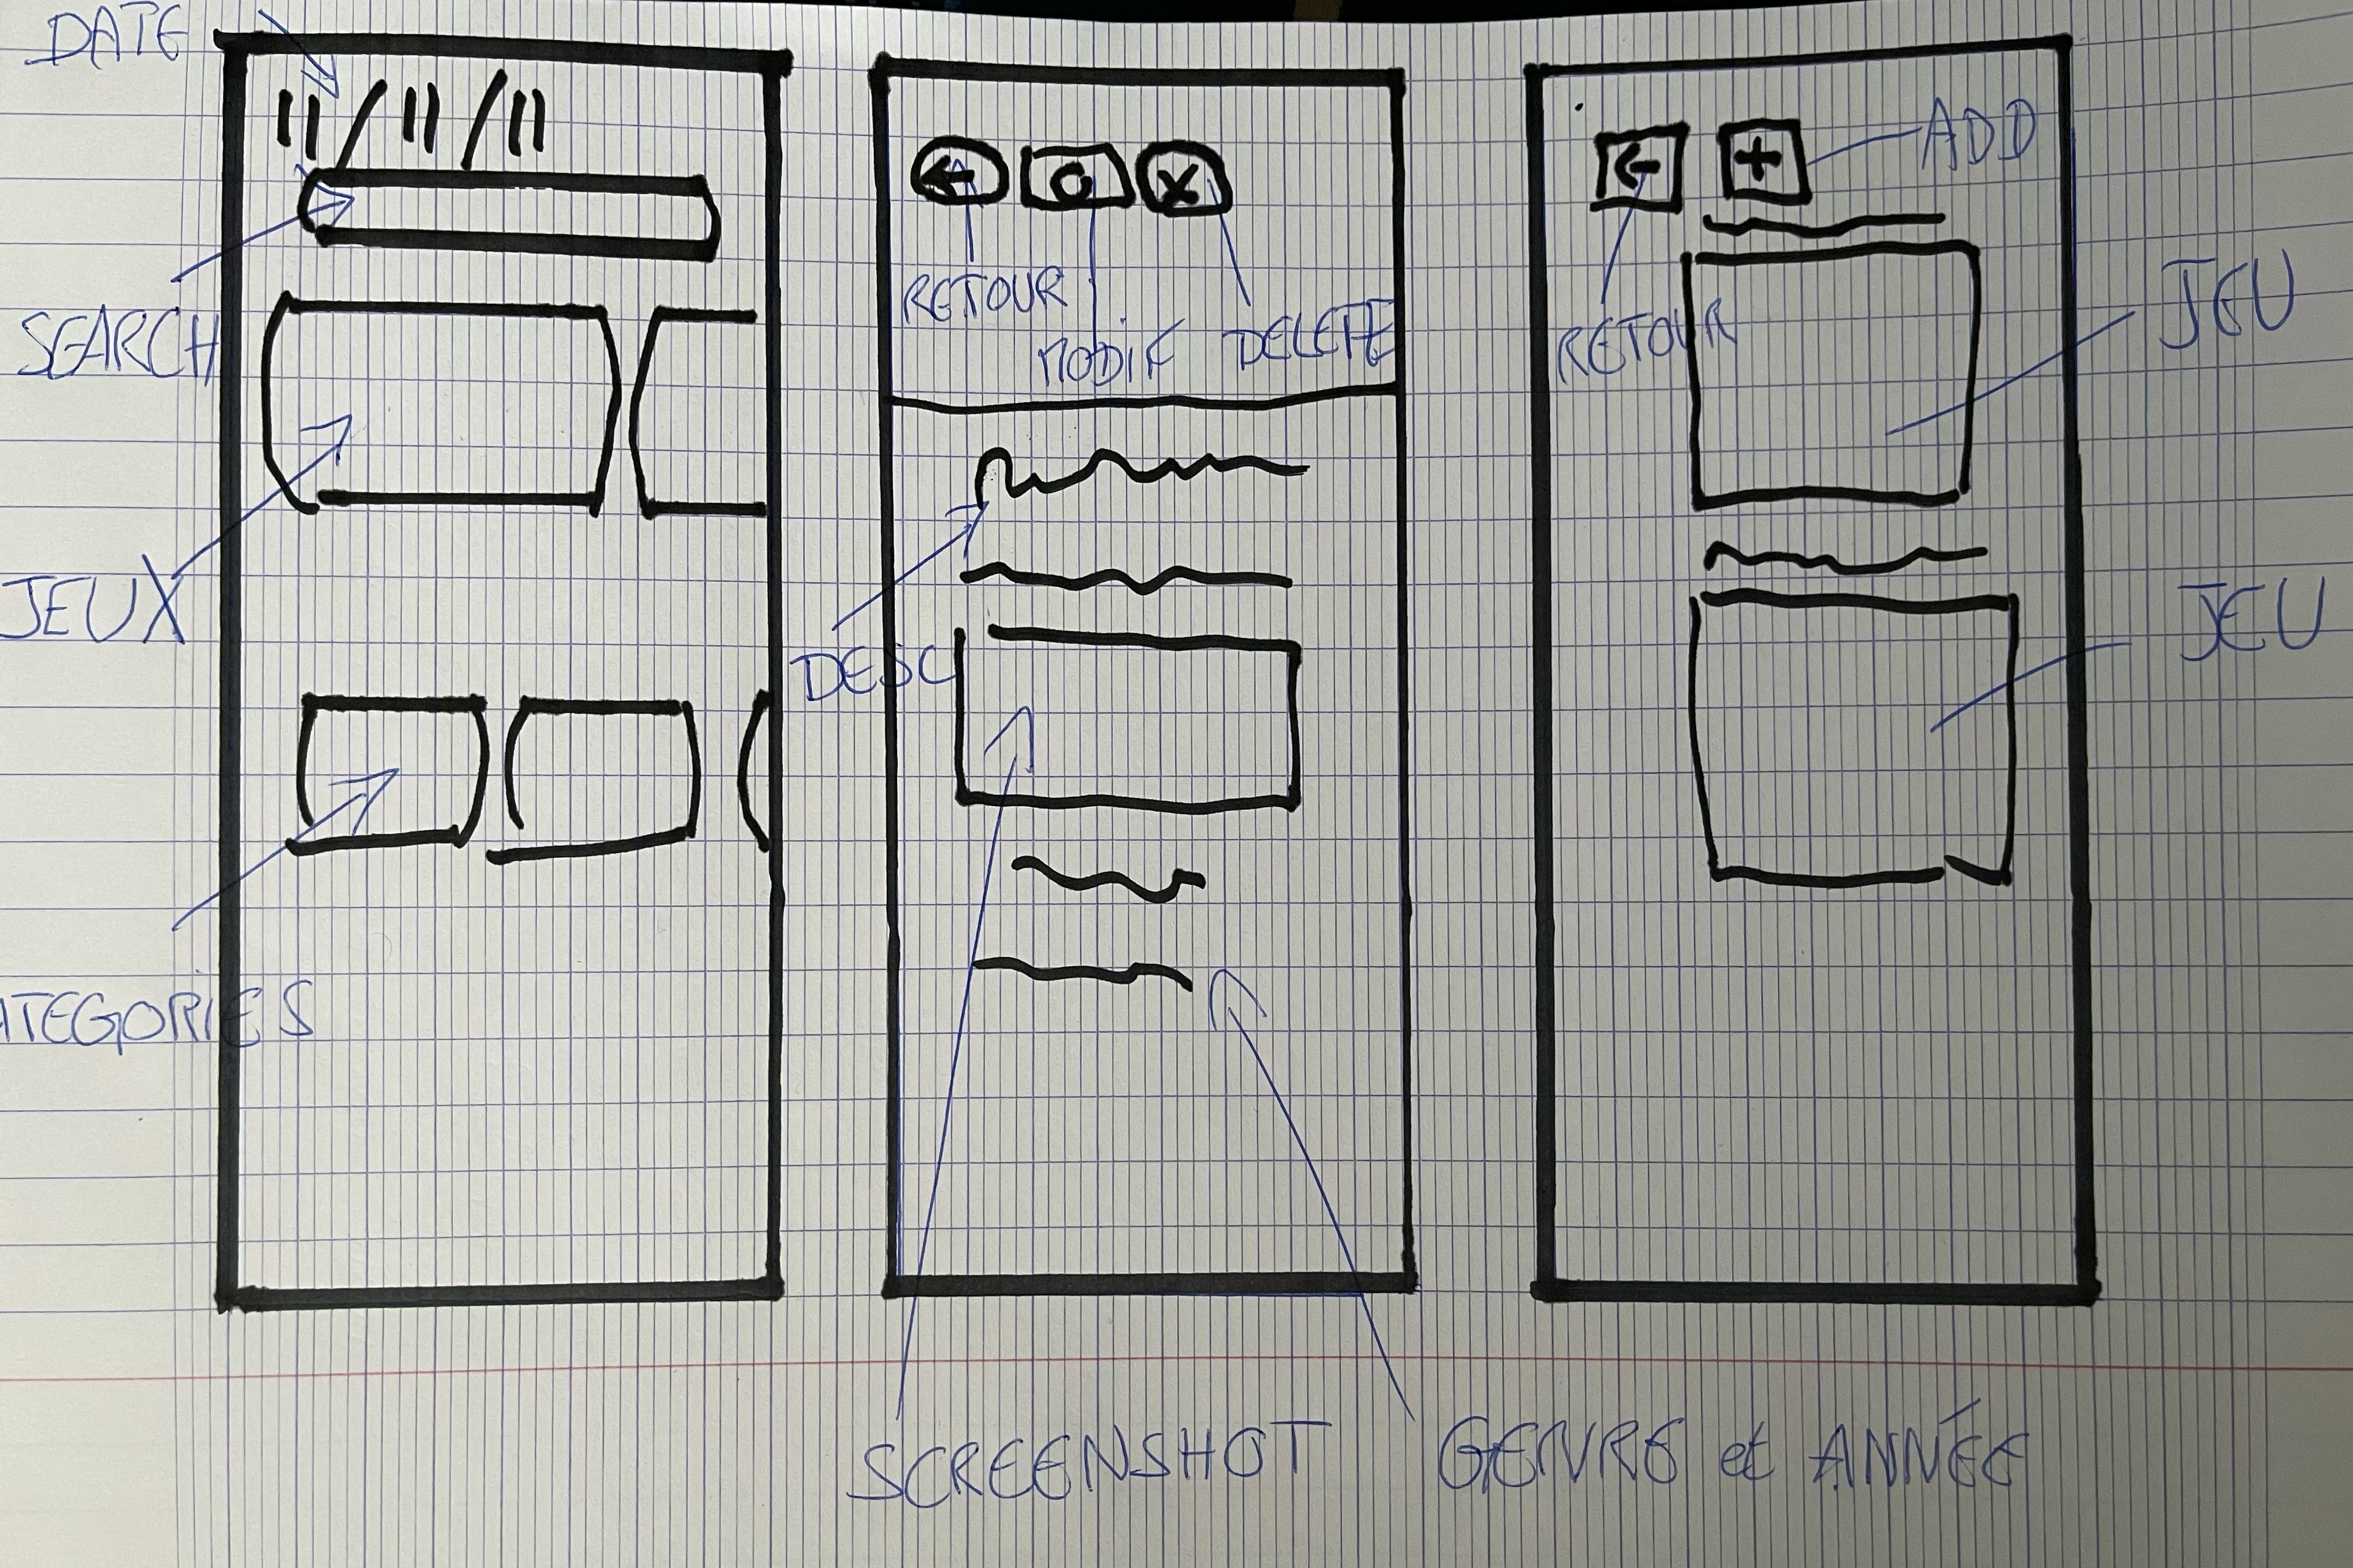 DATE
11/11/11
SEARCH
JEUX
ATEGORIES
RETOUR
MODIF
DELETE
DESC
SCREENSHOT
GENRE et ANNÉE
ADD
RETOUR
JEU
JEU